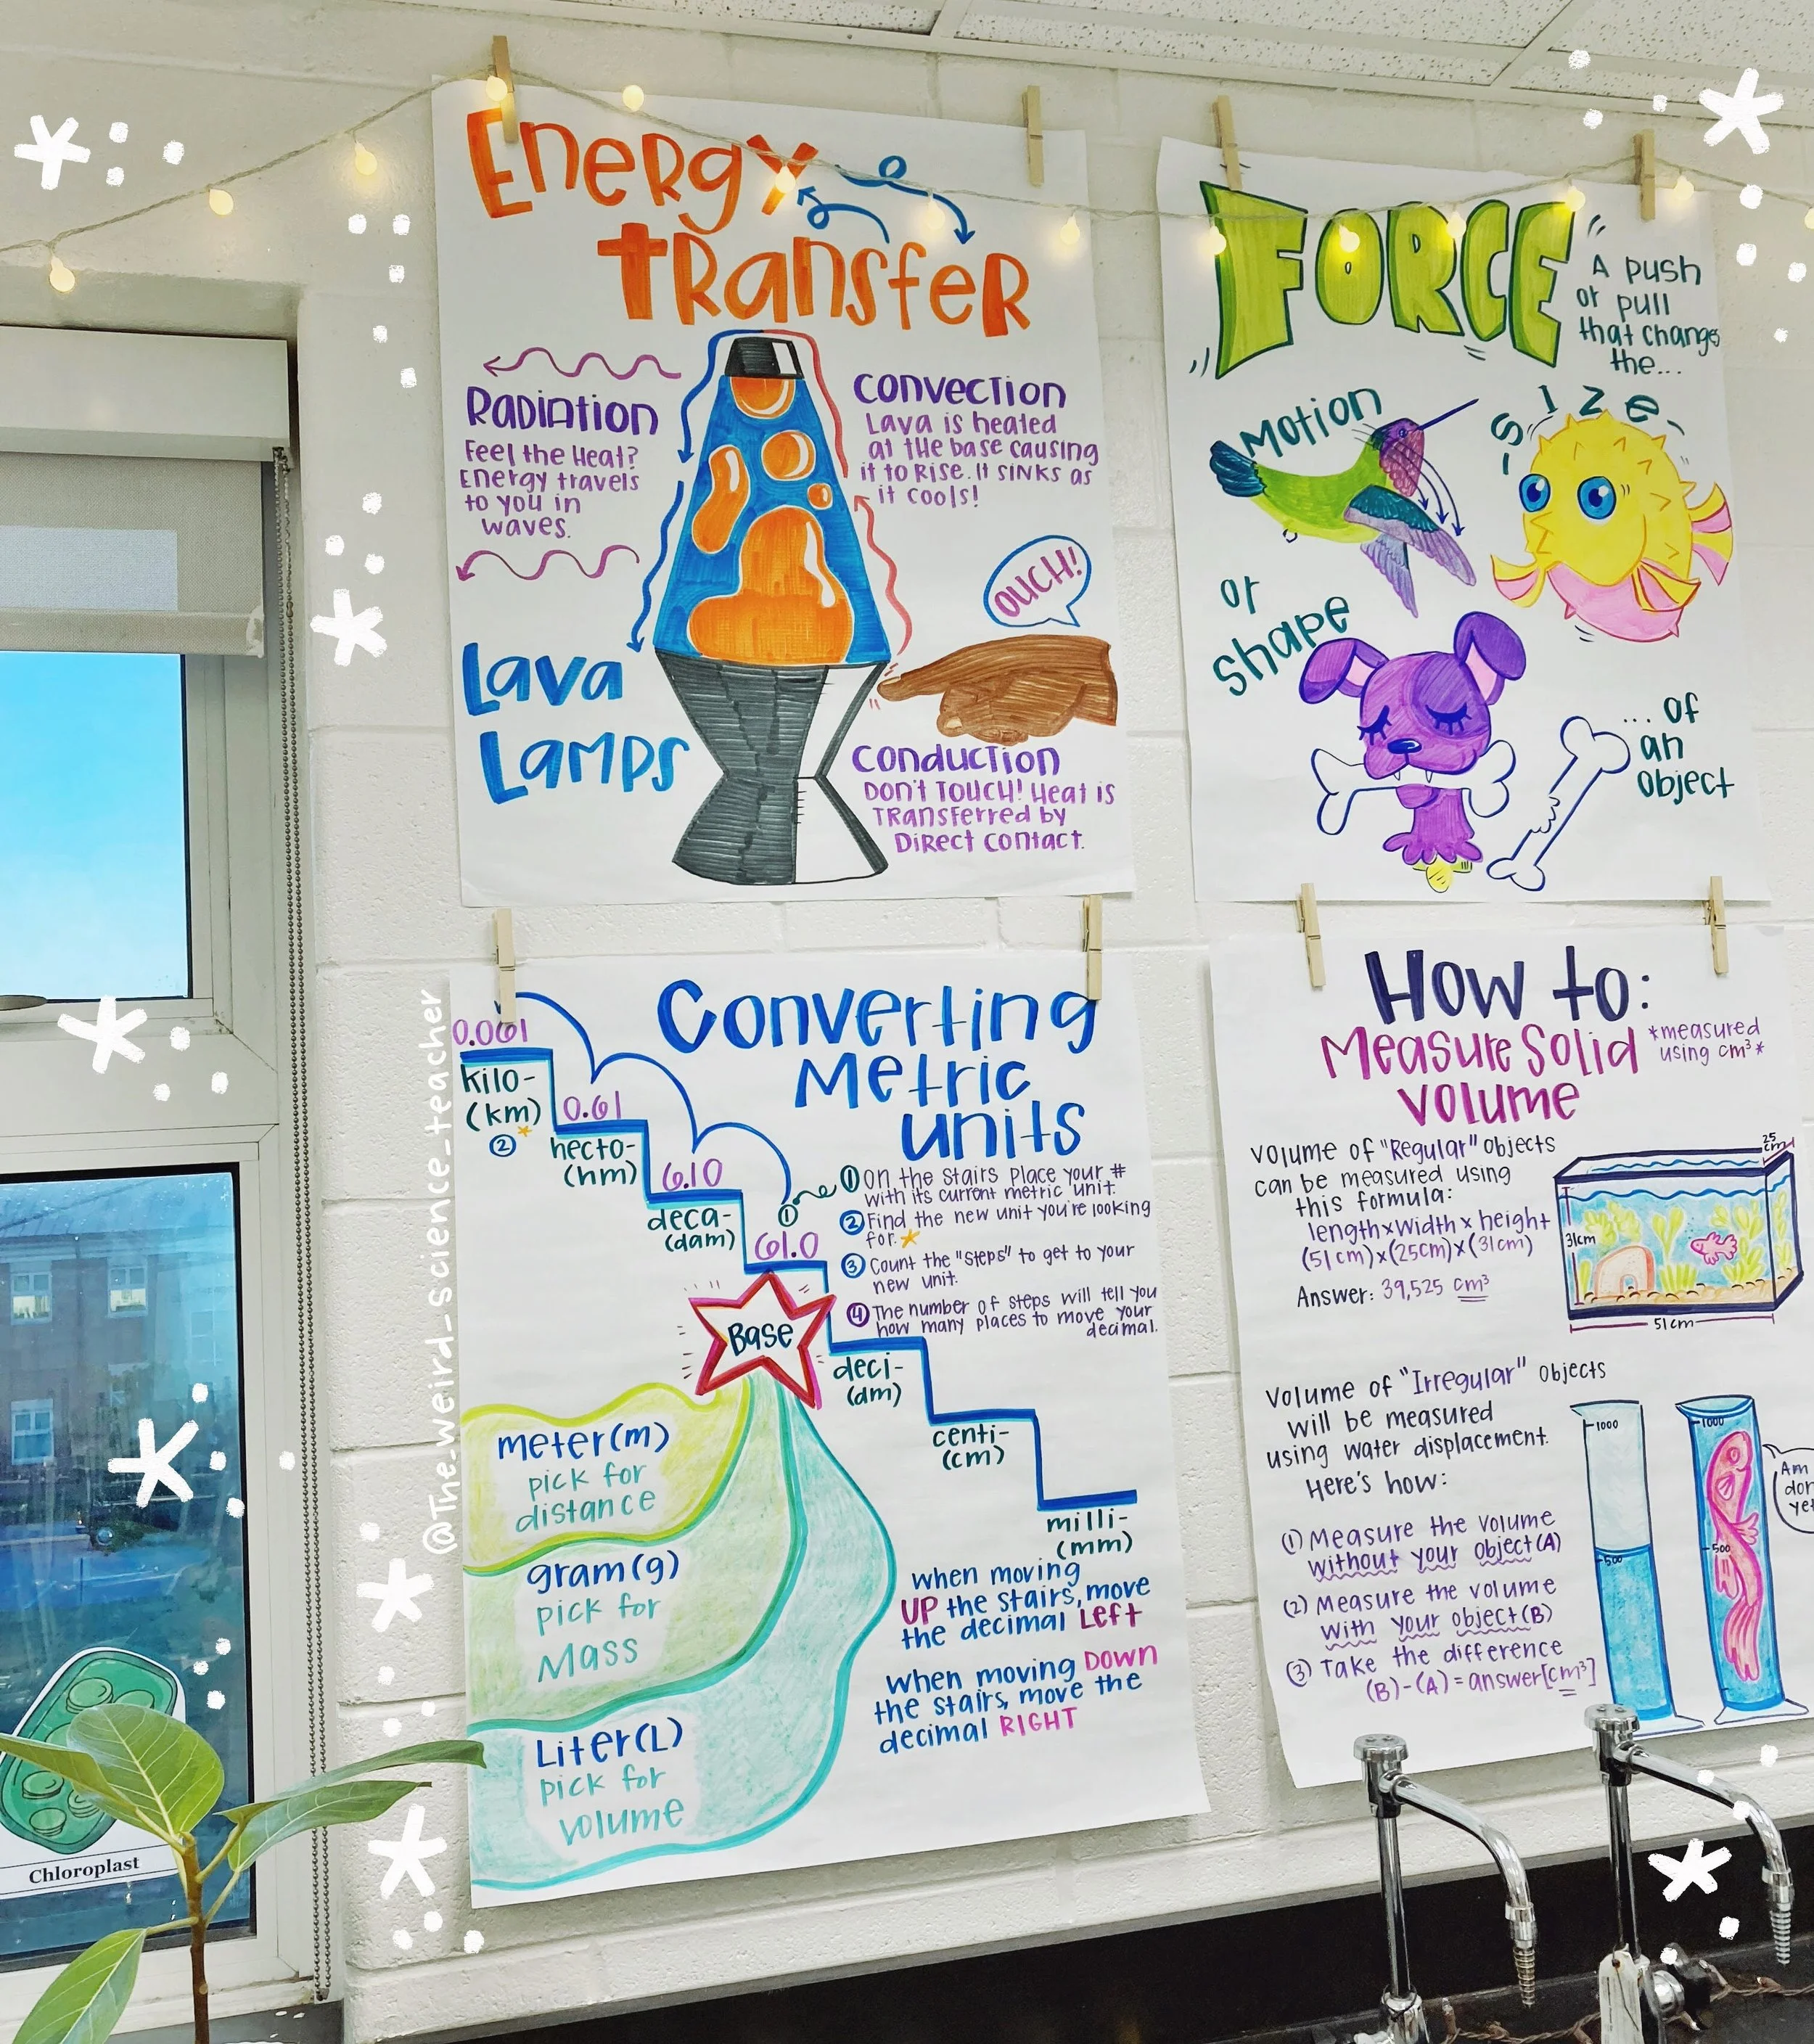 Energy
Transfer
Radiation
Feel the Heat?
Energy travels
to you in
waves.
Convection
Lava is heated
at the base causing
it to Rise. It sinks as
it cools!
OUCH!
Lava
Lamps
Conduction
Don't Touch! Heat is
Transferred by
Direct contact.
FORCE
A push
or pull
that changes
the...
Motion
size
or
shape
... of
an
object
Converting
Metric
units
0.061
kilo-
(km)
②
0.61
hecto-
(hm)
6.10
deca-
(dam)
①
61.0
Base
deci-
(dm)
centi-
(cm)
milli-
(mm)
① On the stairs place your #
with its current metric unit.
② Find the new unit you're looking
for.
③ Count the "steps" to get to your
new unit.
④ The number of steps will tell you
how many places to move your
decimal.
meter(m)
pick for
distance
gram(g)
pick for
Mass
Liter(L)
pick for
volume
when moving
UP the stairs, move
the decimal Left
when moving DOWN
the stairs, move the
decimal RIGHT
How to:
Measure Solid
volume
*measured
using cm³*
volume of "Regular" objects
can be measured using
this formula:
length x width x height
(51cm)x(25cm)x(31cm)
Answer: 39,525 cm³
25
cm
31cm
51cm
volume of "Irregular" objects
will be measured
using water displacement.
Here's how:
(1) Measure the volume
without your object(A)
(2) Measure the volume
with your object(B)
(3) Take the difference
(B)-(A)=answer[cm³]
1000
500
1000
500
Am
@The_weird_science_teacher
Chloroplast